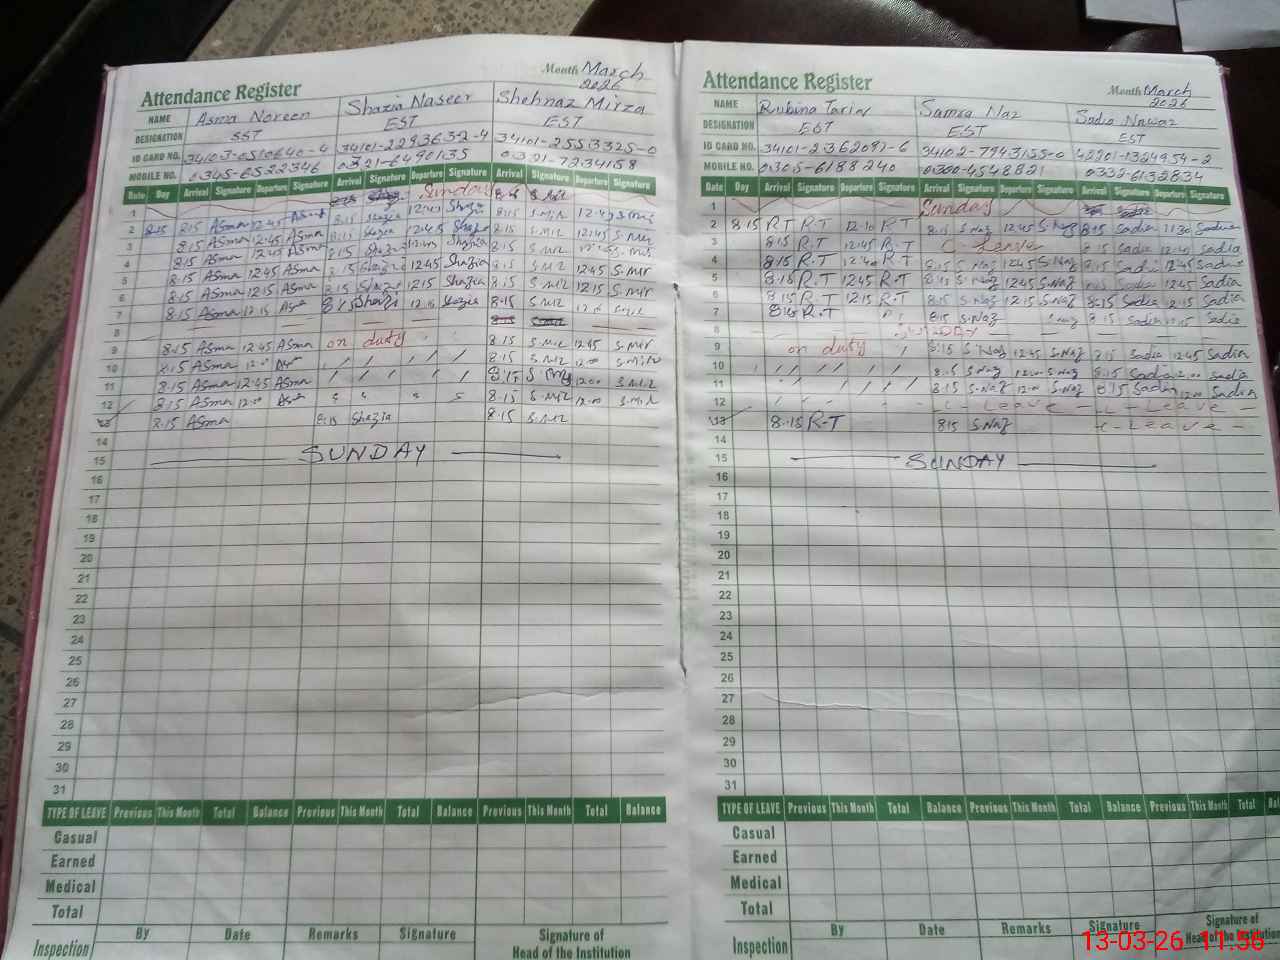 Attendance Register
Month March 2026
NAME Asma Noreen Shazia Naseer Shehnaz Mirza
DESIGNATION SST EST EST
ID CARD NO. 34103-0510640-4 34101-2293632-4 34101-2553325-0
MOBILE NO. 0345-6522346 0321-6490135 0321-7234158
Date Day Arrival Signature Departure Signature Arrival Signature Departure Signature Arrival Signature Departure Signature
1 Sunday
2 8:15 8:15 Asma 12:45 Asma 8:15 Shazia 12:45 Shazia 8:15 S.Mir 12:45 S.Mir
3 8:15 Asma 12:45 Asma 8:15 Shazia 12:45 Shazia 8:15 S.Mir 12:45 S.Mir
4 8:15 Asma 12:45 Asma 8:15 Shazia Shazia 8:15 S.Mir S.Mir
5 8:15 Asma 12:45 Asma 8:15 Shazia 12:45 Shazia 8:15 S.Mir 12:45 S.Mir
6 8:15 Asma 12:15 Asma 8:15 Shazia 12:15 Shazia 8:15 S.Mir 12:15 S.Mir
7 8:15 Asma 12:15 8:15 Shazia Shazia 8:15 S.Mir
8
9 8:15 Asma 12:45 Asma on duty 8:15 S.Mir 12:45 S.Mir
10 8:15 Asma 8:15 S.Mir 12:00 S.Mir
11 8:15 Asma 12:45 Asma 8:15 12:00 S.Mir
12 8:15 Asma 12:00 8:15 S.Mir 12:00 S.Mir
13 8:15 Asma 8:15 Shazia 8:15 S.Mir
14
15 SUNDAY
16
17
18
19
20
21
22
23
24
25
26
27
28
29
30
31
TYPE OF LEAVE Previous This Month Total Balance Previous This Month Total Balance Previous This Month Total Balance
Casual
Earned
Medical
Total
Inspection By Date Remarks Signature Signature of Head of the Institution
Attendance Register
Month March 2026
NAME Rubina Tarin Samra Naz Sadia Nawaz
DESIGNATION EST EST EST
ID CARD NO. 34101-2362092-6 34102-7943155-0 42201-1324954-2
MOBILE NO. 0305-6188240 0300-4548821 0332-6132834
Date Day Arrival Signature Departure Signature Arrival Signature Departure Signature Arrival Signature Departure Signature
1 Sunday
2 8:15 R.T R.T R.T 8:15 S.Naz 12:45 S.Naz 8:15 Sadia 11:30 Sadia
3 8:15 R.T 12:45 R.T C-leave 8:15 Sadia 12:45 Sadia
4 8:15 R.T R.T 8:15 S.Naz 12:45 S.Naz 8:15 Sadia 12:45 Sadia
5 8:15 R.T 12:45 R.T 8:15 S.Naz 12:45 S.Naz Sadia 12:45 Sadia
6 8:15 R.T 12:15 R.T 8:15 S.Naz 12:15 S.Naz 8:15 Sadia 12:15 Sadia
7 8:15 R.T 8:15 S.Naz S.Naz 8:15 Sadia Sadia
8 SUNDAY
9 on duty 8:15 S.Naz 12:45 S.Naz 8:15 Sadia 12:45 Sadia
10 8:15 S.Naz 12:00 S.Naz 8:15 Sadia 12:00 Sadia
11 8:15 S.Naz 12:00 S.Naz 8:15 Sadia 12:00 Sadia
12 C-Leave C-Leave
13 8:15 R-T 8:15 S.Naz C-Leave
14
15 SUNDAY
16
17
18
19
20
21
22
23
24
25
26
27
28
29
30
31
TYPE OF LEAVE Previous This Month Total Balance Previous This Month Total Balance Previous This Month Total
Casual
Earned
Medical
Total
Inspection By Date Remarks Signature Signature of Head of the Institution
13-03-26 11:56